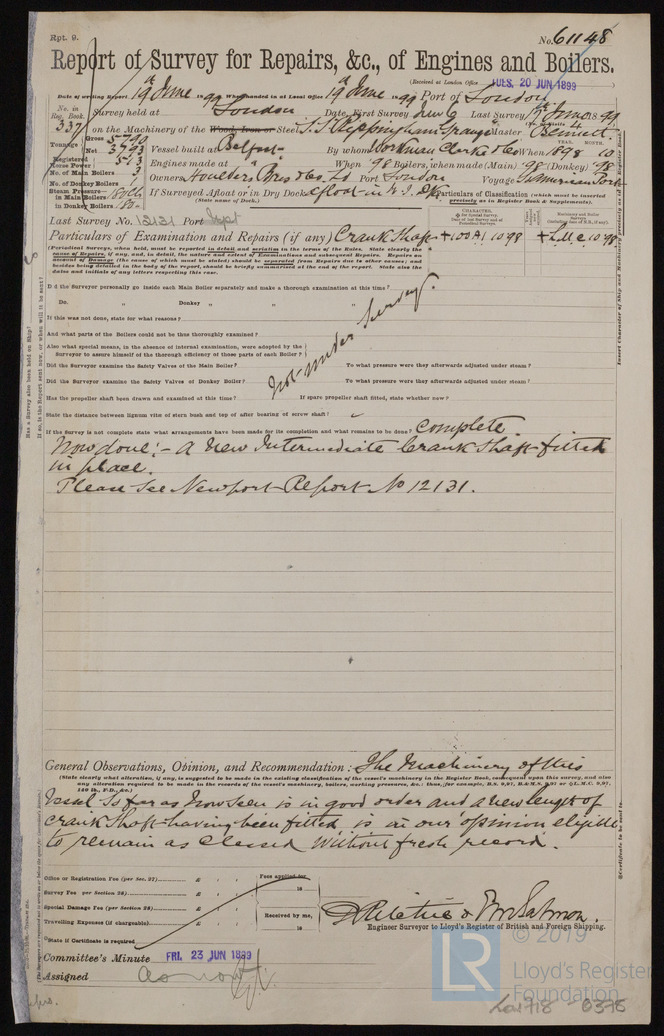 Rpt. 9.
No. 61148
Report of Survey for Repairs, &c., of Engines and Boilers.
(Received at London Office TUES. 20 JUN 1899)
Date of writing Report 19th June 1899 When handed in at Local Office 19th June 1899 Port of London
No. in Reg. Book. 337
Survey held at London Date, First Survey June 6 Last Survey 7th June 1899
on the Machinery of the Wood, Iron or Steel S.S. Rippingham Grange Master Bennett
Tonnage Gross 5790
Net 3793
Vessel built at Belfast By whom Workman Clark & Co When 1898 10
Registered Horse Power 513
Engines made at " When 98 Boilers, when made (Main) 98 (Donkey) 98
No. of Main Boilers 3
Owners Houlder, Bros & Co. Ld Port London Voyage
No. of Donkey Boilers 1
Steam Pressure in Main Boilers
in Donkey Boilers
If Surveyed Afloat or in Dry Dock afloat in W. I. Dk
(State name of Dock.)
Particulars of Classification (which must be inserted precisely as in Register Book & Supplements).
Last Survey No. 12131 Port Npt
Particulars of Examination and Repairs (if any) Crank Shaft + 100 A1 10.98 + LMC 10.98
(Periodical Surveys, when held, must be reported in detail and seriatim in the terms of the Rules. State clearly the cause of Repairs, if any, and, in detail, the nature and extent of Examinations and subsequent Repairs. Repairs on account of Damage (the cause of which must be stated) should be separated from Repairs due to other causes; and besides being detailed in the body of the report, should be briefly summarised at the end of the report. State also the dates and initials of any letters respecting this case.)
Did the Surveyor personally go inside each Main Boiler separately and make a thorough examination at this time?
Do. " Donkey " "
If this was not done, state for what reasons?
And what parts of the Boilers could not be thus thoroughly examined?
Also what special means, in the absence of internal examination, were adopted by the Surveyor to assure himself of the thorough efficiency of those parts of each Boiler?
Not under Survey.
Did the Surveyor examine the Safety Valves of the Main Boiler? To what pressure were they afterwards adjusted under steam?
Did the Surveyor examine the Safety Valves of Donkey Boiler? To what pressure were they afterwards adjusted under steam?
Has the propeller shaft been drawn and examined at this time? If spare propeller shaft fitted, state whether new?
State the distance between lignum vitæ of stern bush and top of after bearing of screw shaft?
If the Survey is not complete state what arrangements have been made for its completion and what remains to be done? Complete
Now done:- A new Intermediate Crank Shaft fitted
in place.
Please see Newport Report No 12131.
General Observations, Opinion, and Recommendation: The Machinery of this
(State clearly what alteration, if any, is suggested to be made in the existing classification of the vessel's machinery in the Register Book, consequent upon this survey, and also any alteration required to be made in the records of the vessel's machinery, boilers, working pressures, &c.: thus, for example, B.S. 9,97, B.&M.S. 9,97 or L.M.C. 9,97, 140 lb., F.D., &c.)
Vessel so far as now seen is in good order and a new length of
crank shaft having been fitted is in our opinion eligible
to remain as classed without fresh record.
Office or Registration Fee (per Sec. 27) £
Survey Fee per Section 28) £
Special Damage Fee (per Section 28) £
Travelling Expenses (if chargeable) £
Fees applied for
18
Received by me,
18
State if Certificate is required
D Ritchie & Salmon.
Engineer Surveyor to Lloyd's Register of British and Foreign Shipping.
Committee's Minute FRI. 23 JUN 1899
Assigned as now
LR
© 2019
Lloyd's Register
Foundation
Lon718 - 0375